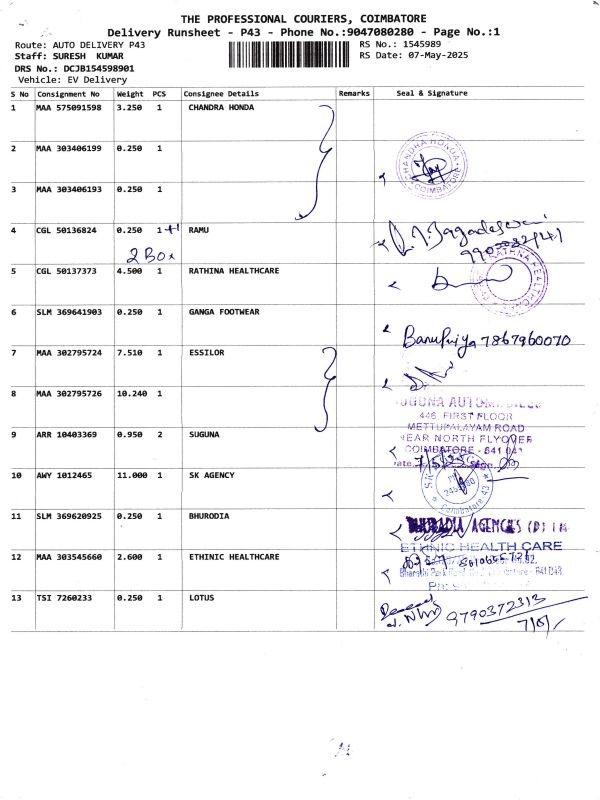 THE PROFESSIONAL COURIERS, COIMBATORE
Delivery Runsheet - P43 - Phone No.:9047080280 - Page No.:1
Route: AUTO DELIVERY P43
RS No.: 1545989
Staff: SURESH KUMAR
RS Date: 07-May-2025
DRS No.: DCJB154598901
Vehicle: EV Delivery
S No Consignment No Weight PCS Consignee Details Remarks Seal & Signature
1 MAA 575091598 3.250 1 CHANDRA HONDA
2 MAA 303406199 0.250 1
3 MAA 303406193 0.250 1
COIMBATORE
4 CGL 50136824 0.250 1+1 RAMU
2 Box
5 CGL 50137373 4.500 1 RATHINA HEALTHCARE
6 SLM 369641903 0.250 1 GANGA FOOTWEAR
Banupriya 7867960070
7 MAA 302795724 7.510 1 ESSILOR
8 MAA 302795726 10.240 1
446, FIRST FLOOR
METTUPALAYAM ROAD
NEAR NORTH FLYOVER
COIMBATORE - 641 043
9 ARR 10403369 0.950 2 SUGUNA
10 AWY 1012465 11.000 1 SK AGENCY
Coimbatore 43
11 SLM 369620925 0.250 1 BHURODIA
12 MAA 303545660 2.600 1 ETHINIC HEALTHCARE
ETHNIC HEALTH CARE
13 TSI 7260233 0.250 1 LOTUS
9790372313